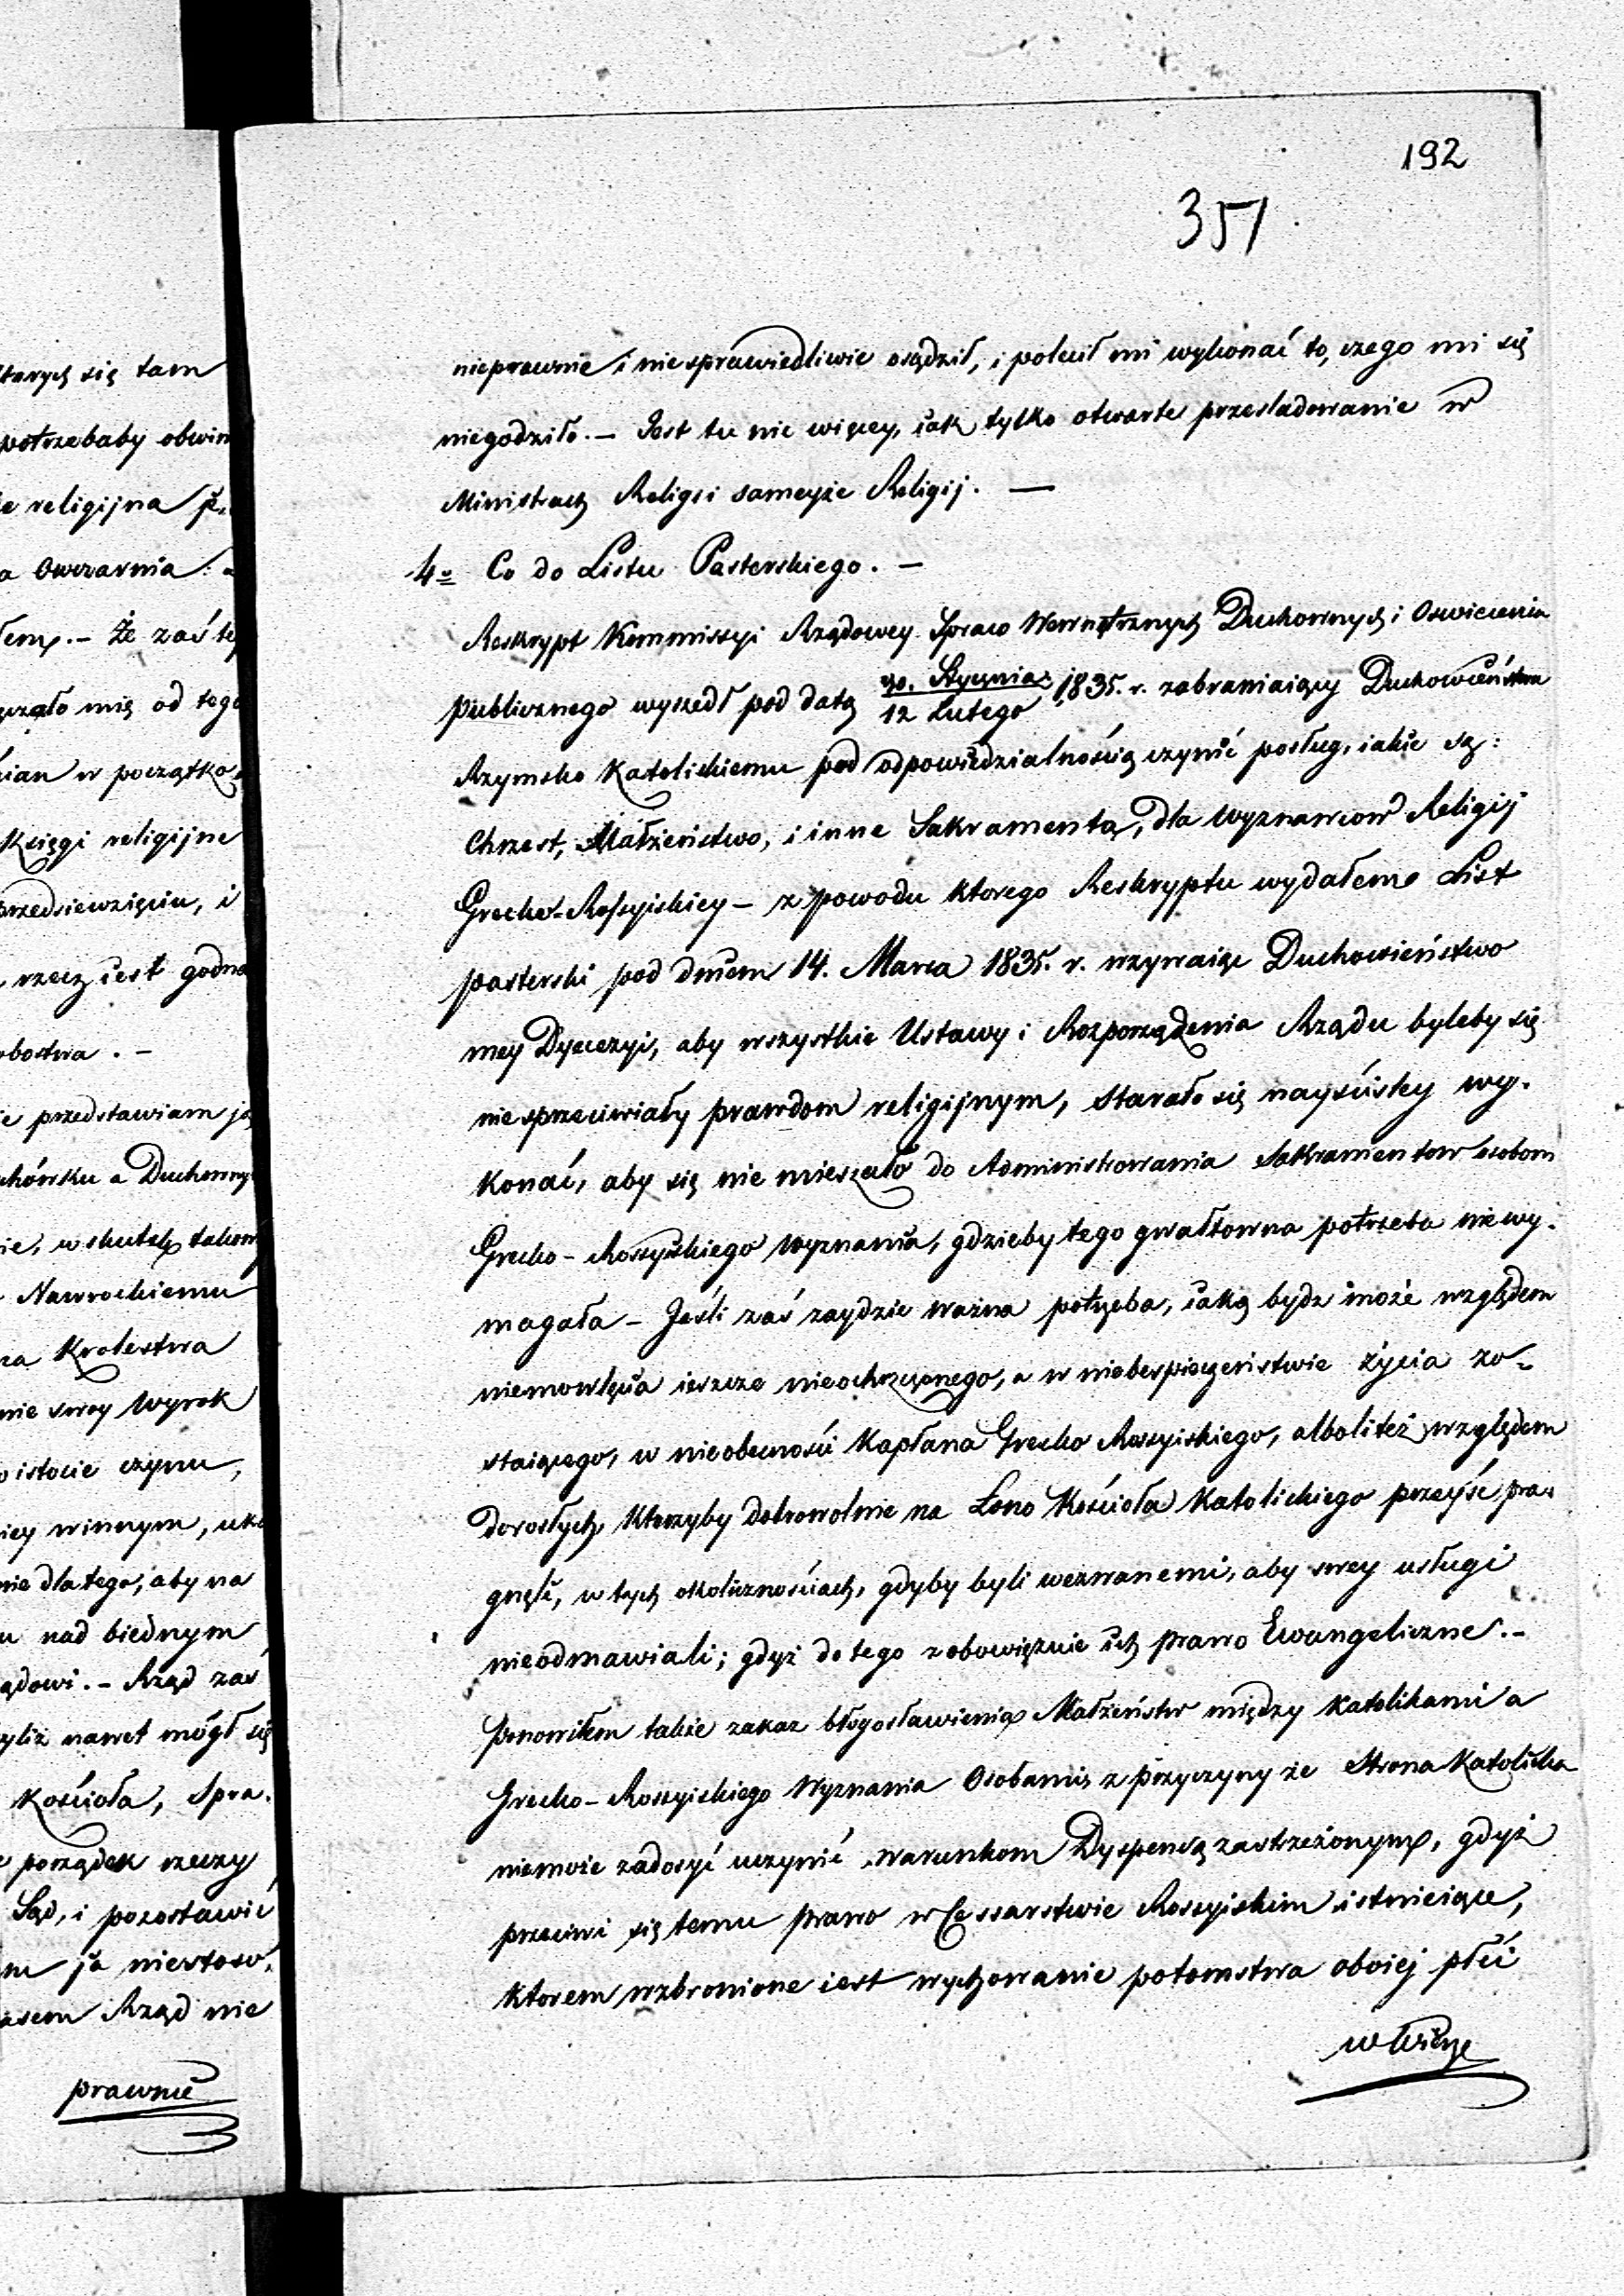 192
351
nieprawnie i niesprawiedliwie osądził, i polecił mi wykonać to, czego mi się
niegodziło. — Jest tu nic więcey, iak tylko otwarte prześladowanie w
Ministrach Religii sameyże Religij. —
4o Co do Listu Pasterskiego. —
Reskrypt Kommissyi Rządowey Spraw Wewnętrznych Duchownych i Oswiecenia
Publicznego wyszedł pod datą 30. Stycznia / 12 Lutego 1835. r. zabraniaiący Duchowieństwu
Rzymsko Katolickiemu pod odpowiedzialnością czynić posług, iakie są:
Chrzest, Małżeństwo, i inne Sakramenta, dla Wyznawcow Religij
Grecko-Rossyiskiey — z powodu ktorego Reskryptu wydałem List
pasterski pod dniem 14. Marca 1835. r. wzywaiąc Duchowieństwo
mey Dyecezyi, aby wszystkie Ustawy i Rozporządzenia Rządu byleby się
niesprzeciwiały prawdom religijnym, starało się nayściśley wy-
konać, aby się nie mieszało do Administrowania Sakramentow osobom
Grecko-Rossyiskiego Wyznania, gdzieby tego gwałtowna potrzeba nie wy-
magała — Jeśli zaś zaydzie ważna potrzeba, iaką bydz może względem
niemowlęcia ieszcze nieochrzczonego, a w niebespieczeństwie życia zo-
staiącego, w nieobecności Kapłana Grecko Rossyiskiego, alboliteż względem
dorosłych, ktorzyby dobrowolnie na Łono Kościoła Katolickiego przeyść pra-
gnęli, w tych okolicznościach, gdyby byli wezwanemi, aby swey usługi
nieodmawiali; gdyż do tego zobowięzuie ich prawo Ewangeliczne. —
Ponowiłem także zakaz błogosławienia Małżeństw między Katolikami a
Grecko-Rossyickiego Wyznania Osobami, z przyczyny że Strona Katolicka
niemoże zadosyć uczynić warunkom Dyspensą zastrzeżonym, gdyż
przeciwi się temu prawo w Cessarstwie Rossyiskim istnieiące,
ktorem wzbronione iest wychowanie potomstwa oboiej płci
w Wierze
ktorych się tam
potrzebaby obwin
religijna
a Owczarnia. —
łem. — Że zaś te
ączało mię od tego
w początko
Księgi religijne
przedsiewzięciu, i
rzecz iest godna
przedstawiam ją
a Duchowny
w skutek takow
Nawrockiemu
Krolestwa
swoy Wyrok
istocie czynu,
winnym, uka
nie dla tego, aby na
nad biednym
ądowi. — Rząd zaś
nawet mógł się
Kościoła, Spra-
porządek rzeczy
Sąd, i pozostawić
ja niestoso-
Rząd nie
prawnie